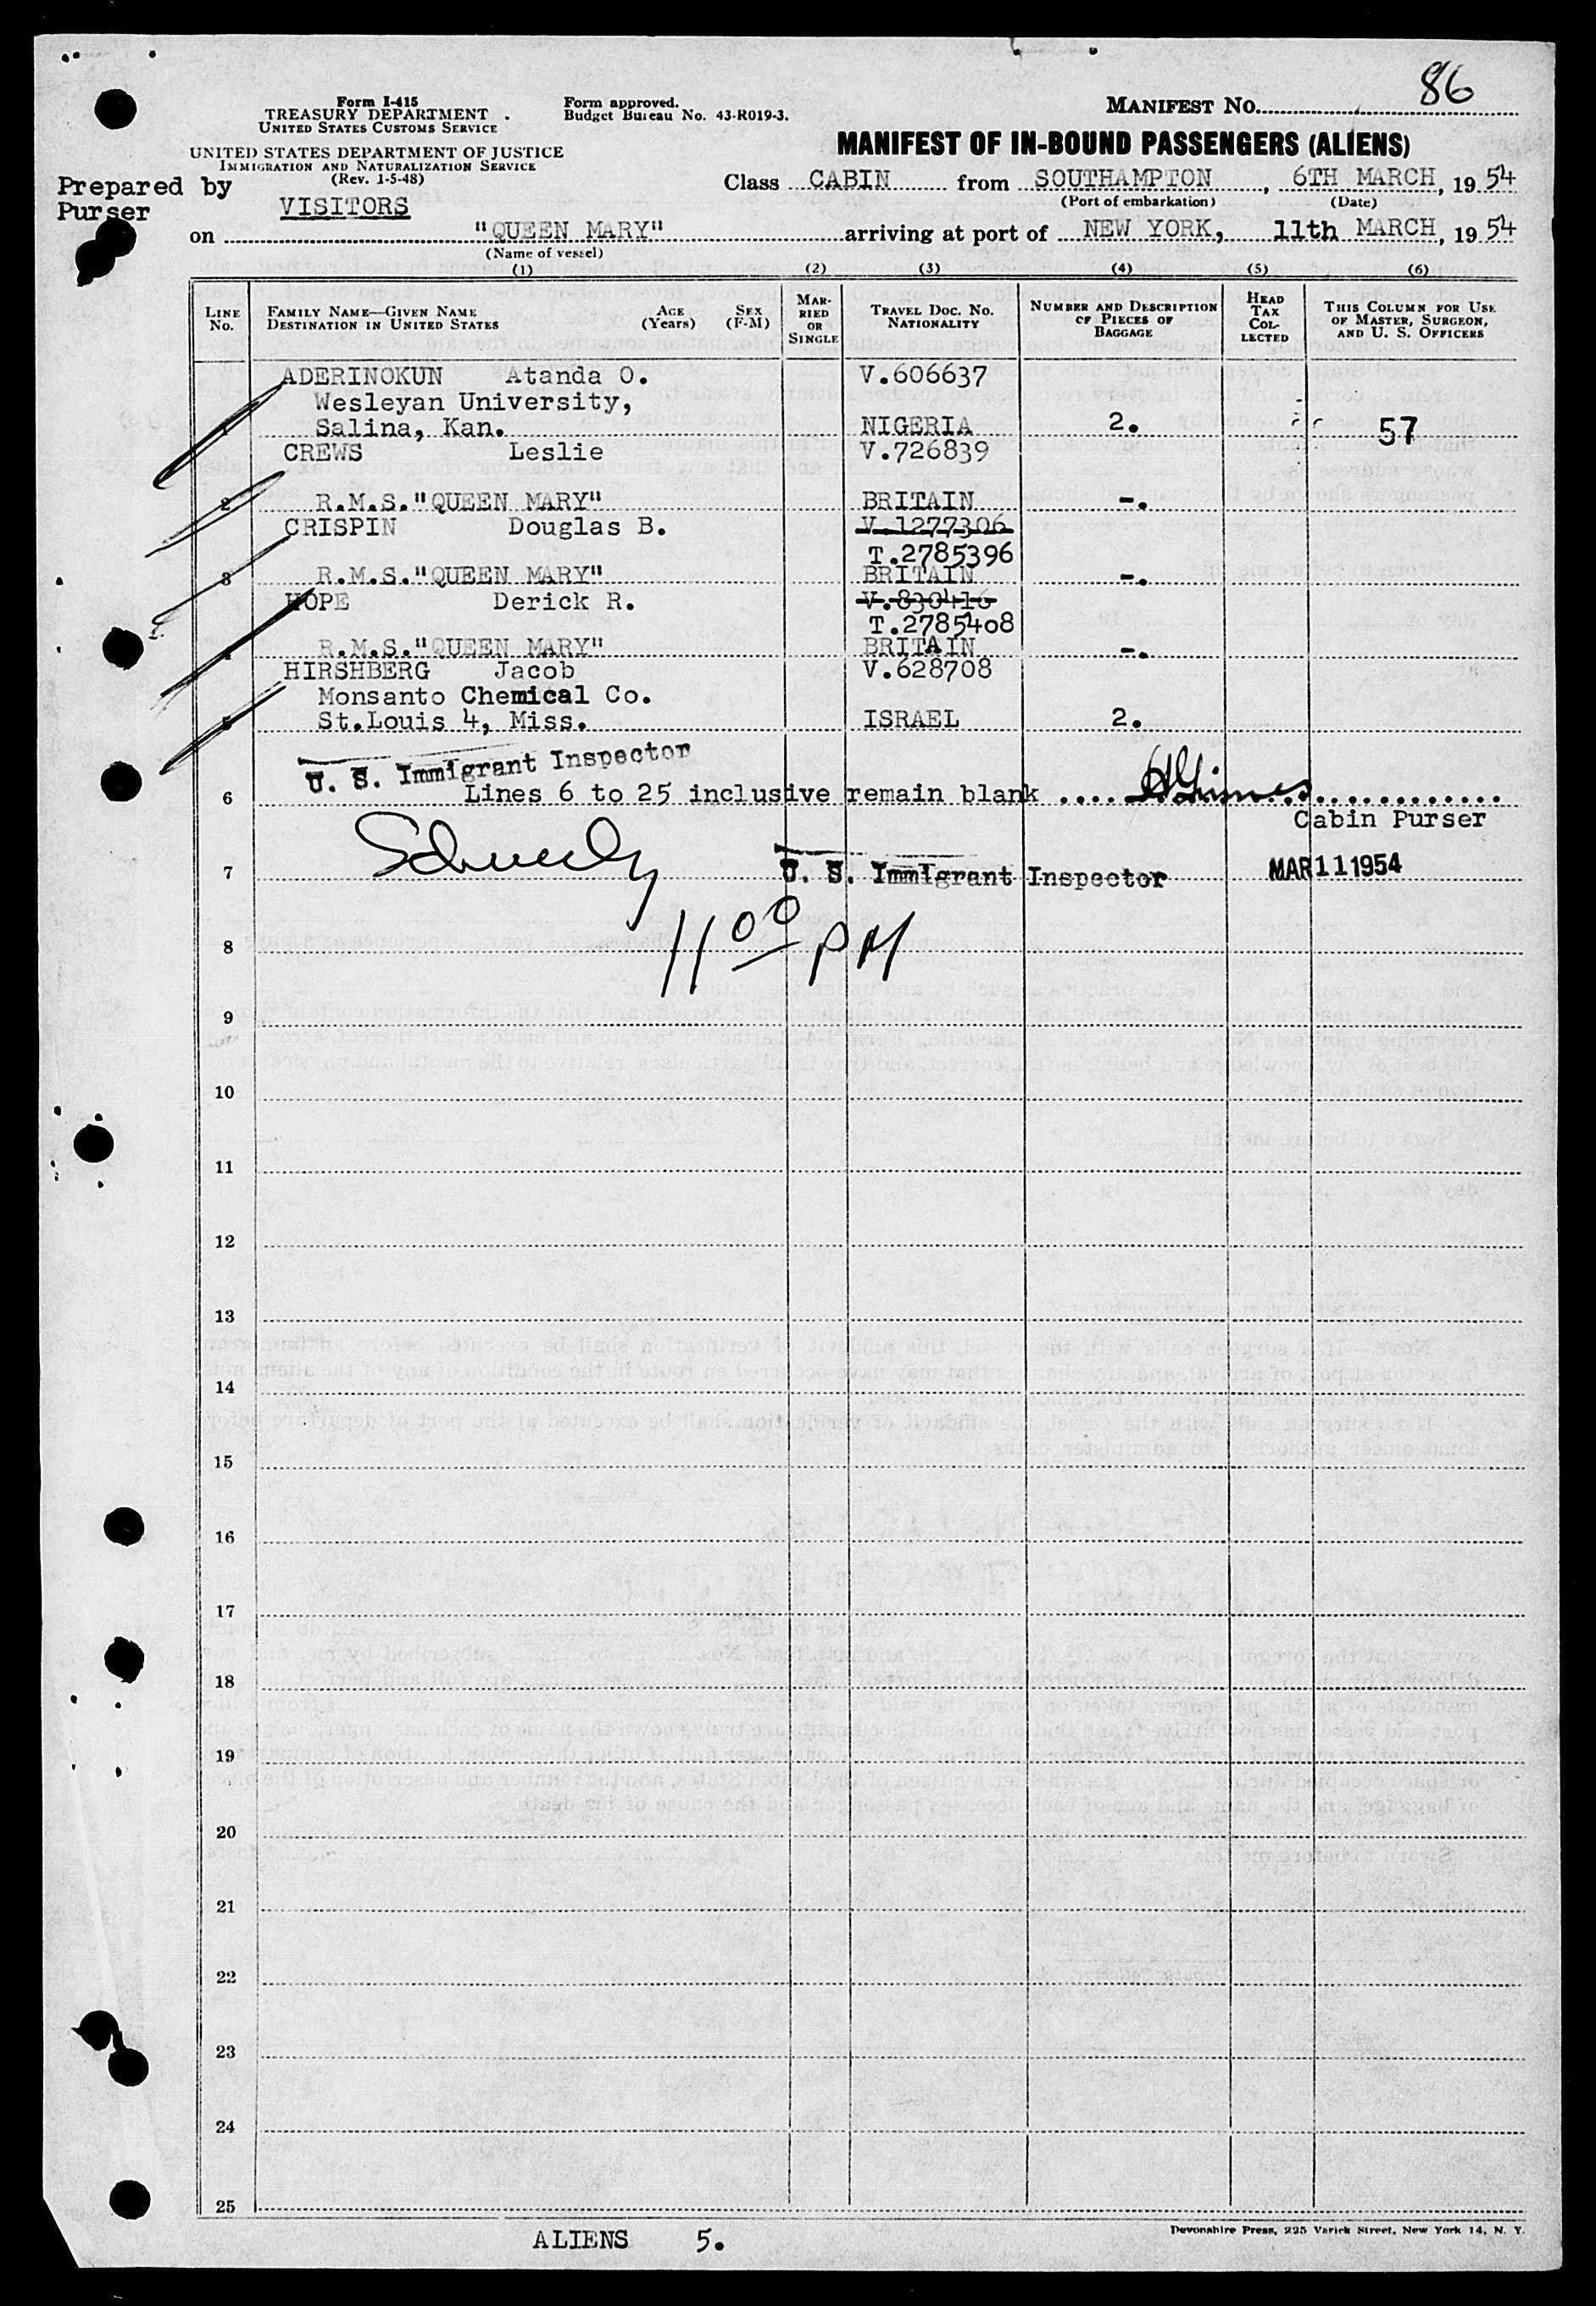 86
Form I-415
TREASURY DEPARTMENT
UNITED STATES CUSTOMS SERVICE
Form approved.
Budget Bureau No. 43-R019-3.
MANIFEST No.
UNITED STATES DEPARTMENT OF JUSTICE
IMMIGRATION AND NATURALIZATION SERVICE
(Rev. 1-5-48)
MANIFEST OF IN-BOUND PASSENGERS (ALIENS)
Prepared by
Purser
VISITORS
Class CABIN from SOUTHAMPTON, 6TH MARCH, 19 54
(Port of embarkation) (Date)
on "QUEEN MARY" arriving at port of NEW YORK, 11th MARCH, 19 54
(Name of vessel)
(1) (2) (3) (4) (5) (6)
LINE No. FAMILY NAME—GIVEN NAME DESTINATION IN UNITED STATES AGE (Years) SEX (F-M) MARRIED OR SINGLE TRAVEL DOC. NO. NATIONALITY NUMBER AND DESCRIPTION OF PIECES OF BAGGAGE HEAD TAX COLLECTED THIS COLUMN FOR USE OF MASTER, SURGEON, AND U. S. OFFICERS
ADERINOKUN Atanda O. V.606637
Wesleyan University,
1 Salina, Kan. NIGERIA 2. 57
CREWS Leslie V.726839
2 R.M.S."QUEEN MARY" BRITAIN -.
CRISPIN Douglas B. V.1277306
T.2785396
3 R.M.S."QUEEN MARY" BRITAIN -.
HOPE Derick R. V.830416
T.2785408
4 R.M.S."QUEEN MARY" BRITAIN -.
HIRSHBERG Jacob V.628708
Monsanto Chemical Co.
5 St.Louis 4, Miss. ISRAEL 2.
U. S. Immigrant Inspector
6 Lines 6 to 25 inclusive remain blank
Cabin Purser
7 U. S. Immigrant Inspector MAR 11 1954
8 11 00 PM
9
10
11
12
13
14
15
16
17
18
19
20
21
22
23
24
25
ALIENS 5.
Devonshire Press, 225 Varick Street, New York 14, N. Y.